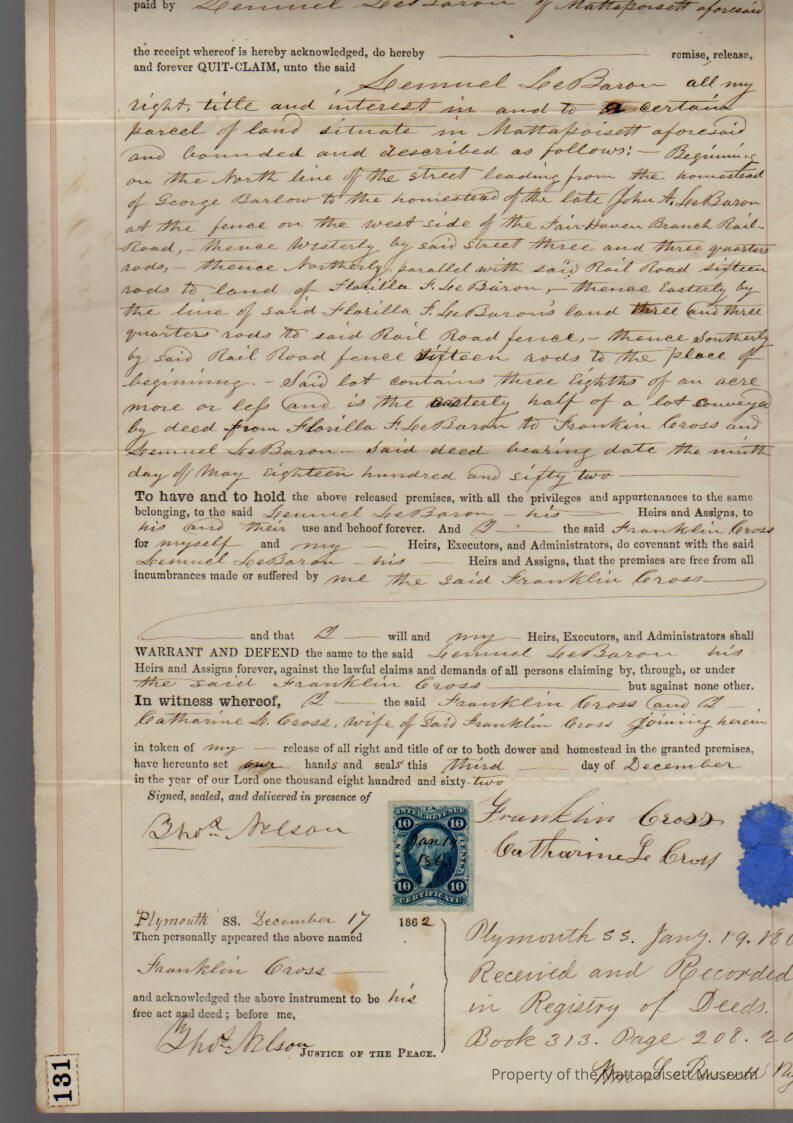 paid by Lemuel LeBaron of Mattapoisett aforesaid
the receipt whereof is hereby acknowledged, do hereby remise, release,
and forever QUIT-CLAIM, unto the said
Lemuel LeBaron all my
right, title and interest in and to a certain
parcel of land situate in Mattapoisett aforesaid
and bounded and described as follows: — Beginning
on the North line of the street leading from the homestead
of George Barlow to the homestead of the late John A. LeBaron
at the fence on the west side of the Fair Haven Branch Rail-
Road, — thence Westerly by said street three and three quarters
rods, — thence Northerly parallel with said Rail Road sixteen
rods to land of Florilla F. LeBaron, — thence Easterly by
the line of said Florilla F. LeBaron's land three and three
quarters rods to said Rail Road fence, — thence Southerly
by said Rail Road fence sixteen rods to the place of
beginning. — Said lot contains three Eighths of an acre
more or less and is the easterly half of a lot conveyed
by deed from Florilla F. LeBaron to Frankin Cross and
Lemuel LeBaron — Said deed bearing date the ninth
day of May Eighteen hundred and sixty two
To have and to hold the above released premises, with all the privileges and appurtenances to the same
belonging, to the said Lemuel LeBaron — his — Heirs and Assigns, to
his and their use and behoof forever. And I — the said Franklin Cross
for myself and my — Heirs, Executors, and Administrators, do covenant with the said
Lemuel LeBaron — his — Heirs and Assigns, that the premises are free from all
incumbrances made or suffered by me the said Franklin Cross
and that I — will and my — Heirs, Executors, and Administrators shall
WARRANT AND DEFEND the same to the said Lemuel LeBaron his
Heirs and Assigns forever, against the lawful claims and demands of all persons claiming by, through, or under
the said Franklin Cross but against none other.
In witness whereof, I — the said Franklin Cross and I —
Catharine L. Cross, wife of Said Franklin Cross joining herein
in token of my — release of all right and title of or to both dower and homestead in the granted premises,
have hereunto set our hands and seals this third day of December
in the year of our Lord one thousand eight hundred and sixty-two
Signed, sealed, and delivered in presence of
Franklin Cross
Thos. Nelson
Catharine L Cross
U.S.
INTER. REVENUE
10 10
TEN CENTS
Jan 19
1863
10 10
CERTIFICATE
Plymouth SS. December 17 1862
Then personally appeared the above named
Franklin Cross
and acknowledged the above instrument to be his
free act and deed; before me,
Thos. Nelson JUSTICE OF THE PEACE.
Plymouth SS. Jany. 19. 18
Received and Recorded
in Registry of Deeds.
Book 313. Page 208.
131
Property of the Mattapoisett Museum